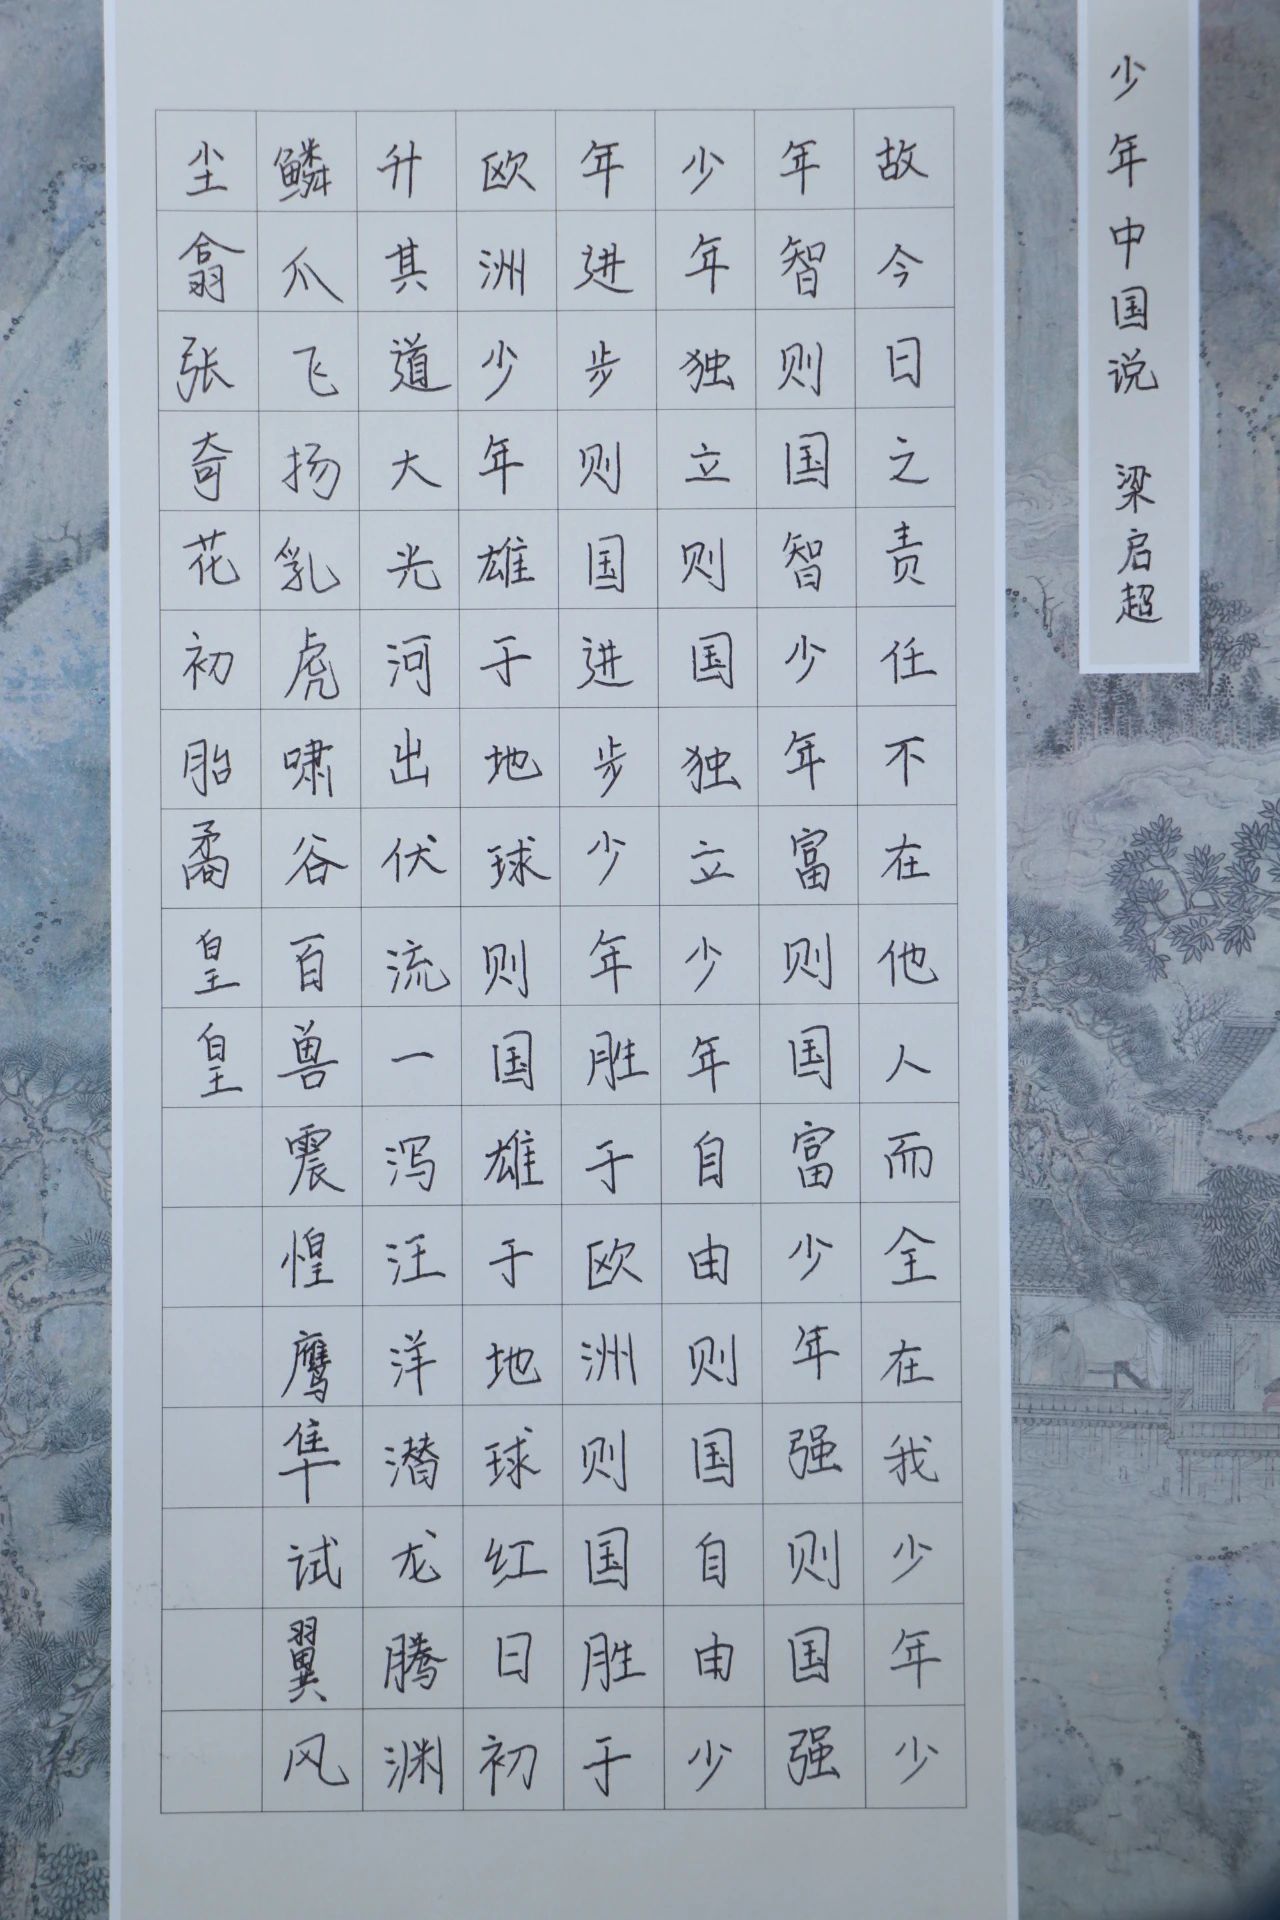 少年中国说 梁启超
故今日之责任不在他人而全在我少年少
年智则国智少年富则国富少年强则国强
少年独立则国独立少年自由则国自由少
年进步则国进步少年胜于欧洲则国胜于
欧洲少年雄于地球则国雄于地球红日初
升其道大光河出伏流一泻汪洋潜龙腾渊
鳞爪飞扬乳虎啸谷百兽震惶鹰隼试翼风
尘翕张奇花初胎矞皇皇